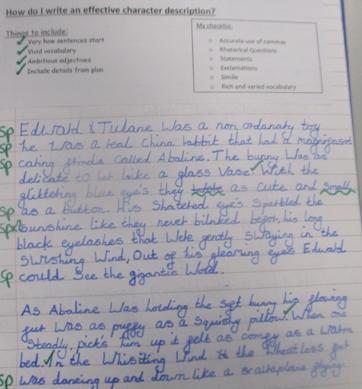 How do I write an effective character description?
Things to include:
Vary how sentences start
Vivid vocabulary
Ambitious adjectives
Include details from plan
My checklist:
Accurate use of commas
Rhetorical Questions
Statements
Exclamations
Simile
Rich and varied vocabulary
Sp Edward Tulane Was a non ordanary toy
Sp he was a real China rabbit that had a
Sp caring called Abaline. The bunny Was as
delicate to like a glass Vase. With the
glittering blue eye's they as cute and Small
Sp as a button. His Shatered eye's Sparkled the
Sunshine like they never before, his long
black eyelashes that Were gently Swaying in the
Swishing Wind, Out of his gleaming eyes Edward
Sp could See the gigantic World.
As Abaline Was holding the bunny his flowing
Was as a Squishy pillow. When one
Steady, picks him up it felt as as a Warm
bed. In the Wind
Sp Was dancing up and down like a